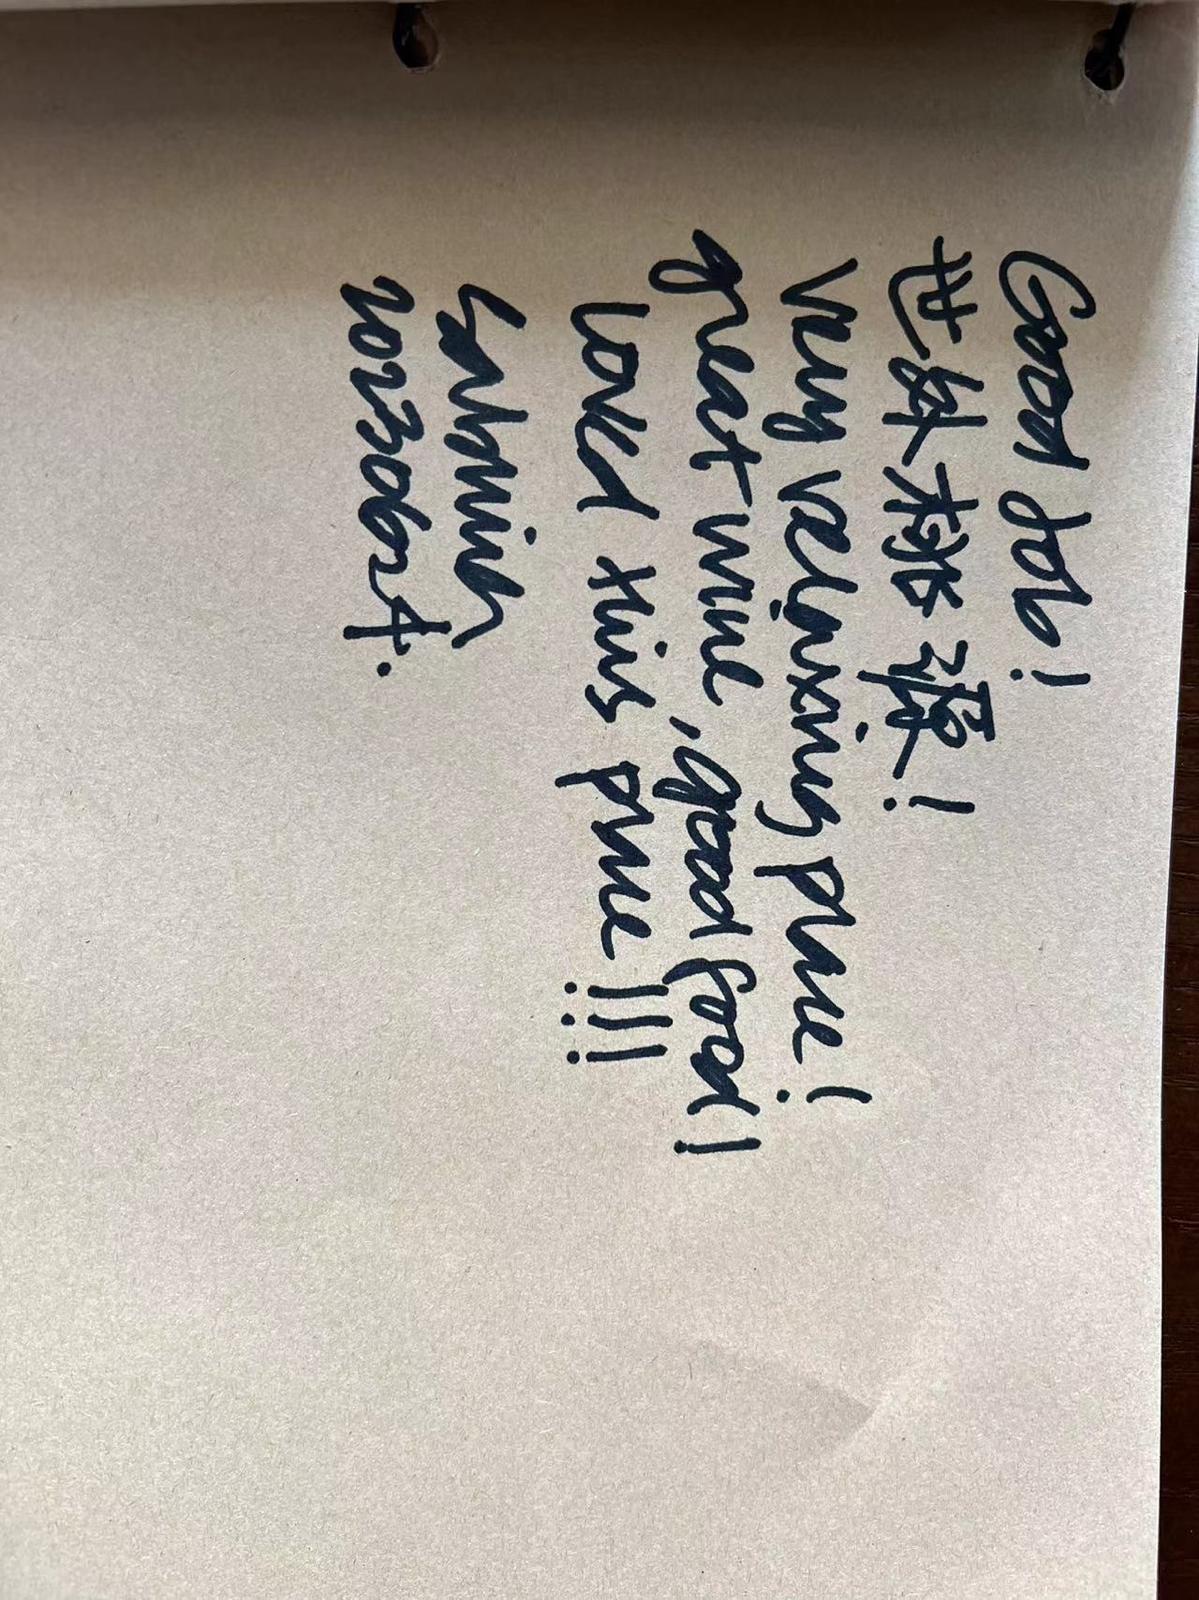 Good Job!
世外桃源!
very relaxing place!
great wine, good food!
Loved this place!!!
2023.06.24.